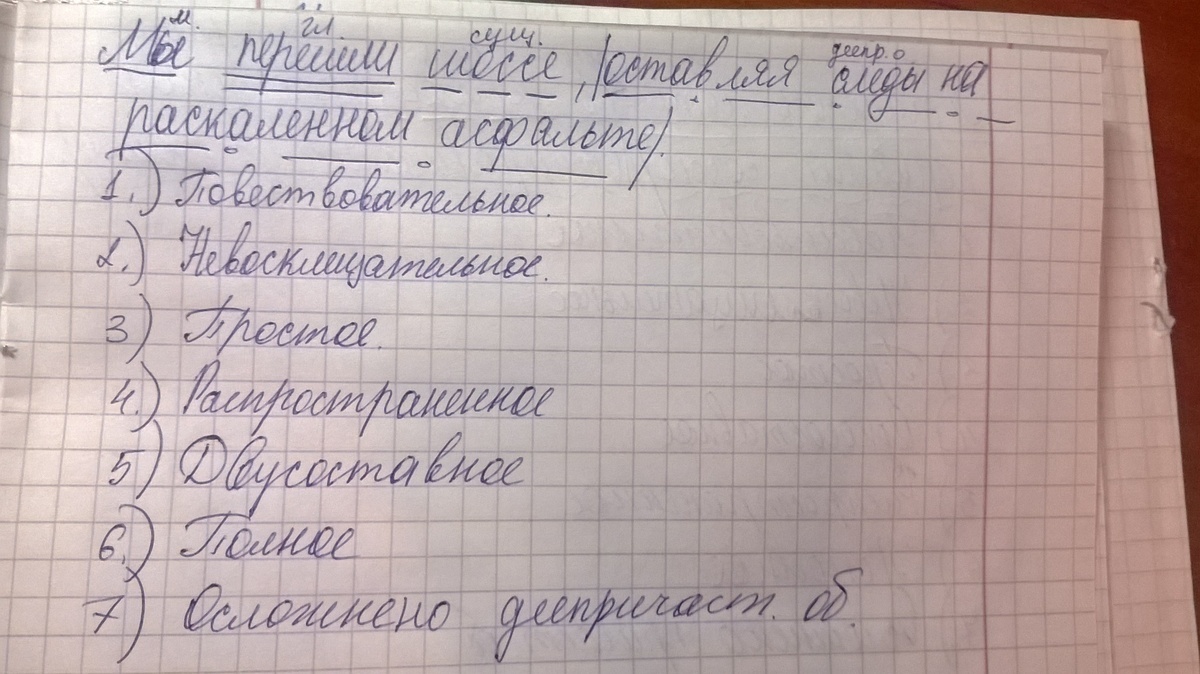 м. гл. сущ. деепр.о
Мы перешли шоссе, |оставляя следы на
раскаленном асфальте|.
1.) Повествовательное.
2.) Невосклицательное.
3) Простое.
4.) Распространенное
5) Двусоставное
6.) Полное
7) Осложнено деепричаст. об.